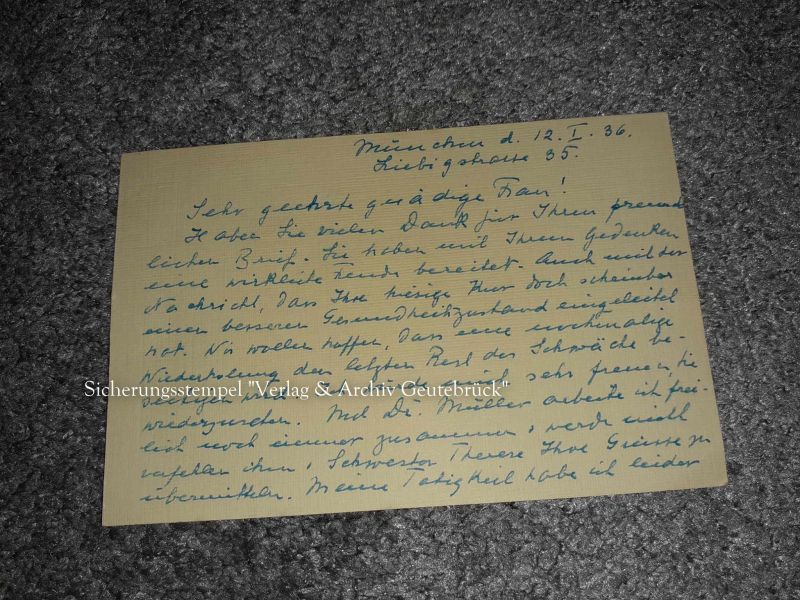 München d. 12. I. 36.
Liebigstrasse 35.
Sehr geehrte gnädige Frau!
Haben Sie vielen Dank für Ihren freund-
lichen Brief. Sie haben mit Ihrem Gedenken
eine wirkliche Freude bereitet. Auch mit der
Nachricht, dass Ihre hiesige Kur doch scheinbar
einen besseren Gesundheitszustand eingeleitet
hat. Wir wollen hoffen, dass eine nochmalige
Wiederholung den letzten Rest der Schwäche be-
sehr freuen, Sie
Sicherungsstempel "Verlag & Archiv Geutebrück"
wiederzusehen. Mit Dr. Müller arbeite ich frei-
lich noch immer zusammen, werde nicht
verfehlen ihm, Schwester Therese Ihre Grüsse zu
übermitteln. Meine Tätigkeit habe ich leider